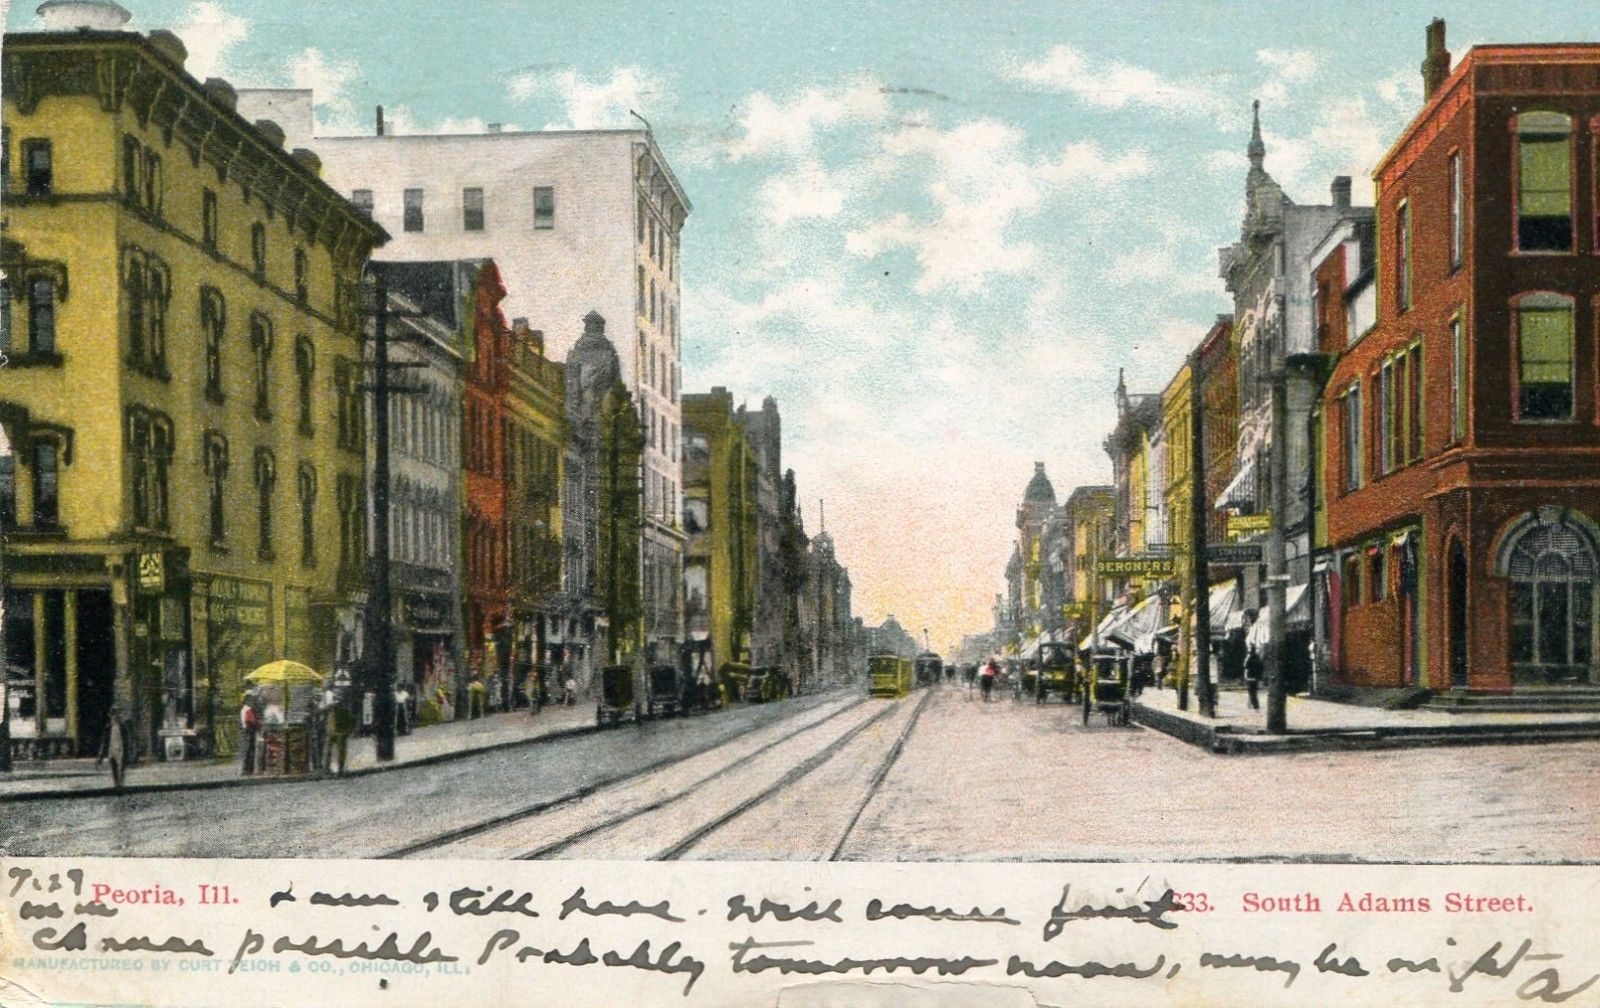 BERGNER'S
7.29
Peoria, Ill.
I am still here. Will come first
333. South Adams Street.
chance possible Probably tomorrow noon, maybe night
MANUFACTURED BY CURT TEICH & CO., CHICAGO, ILL.